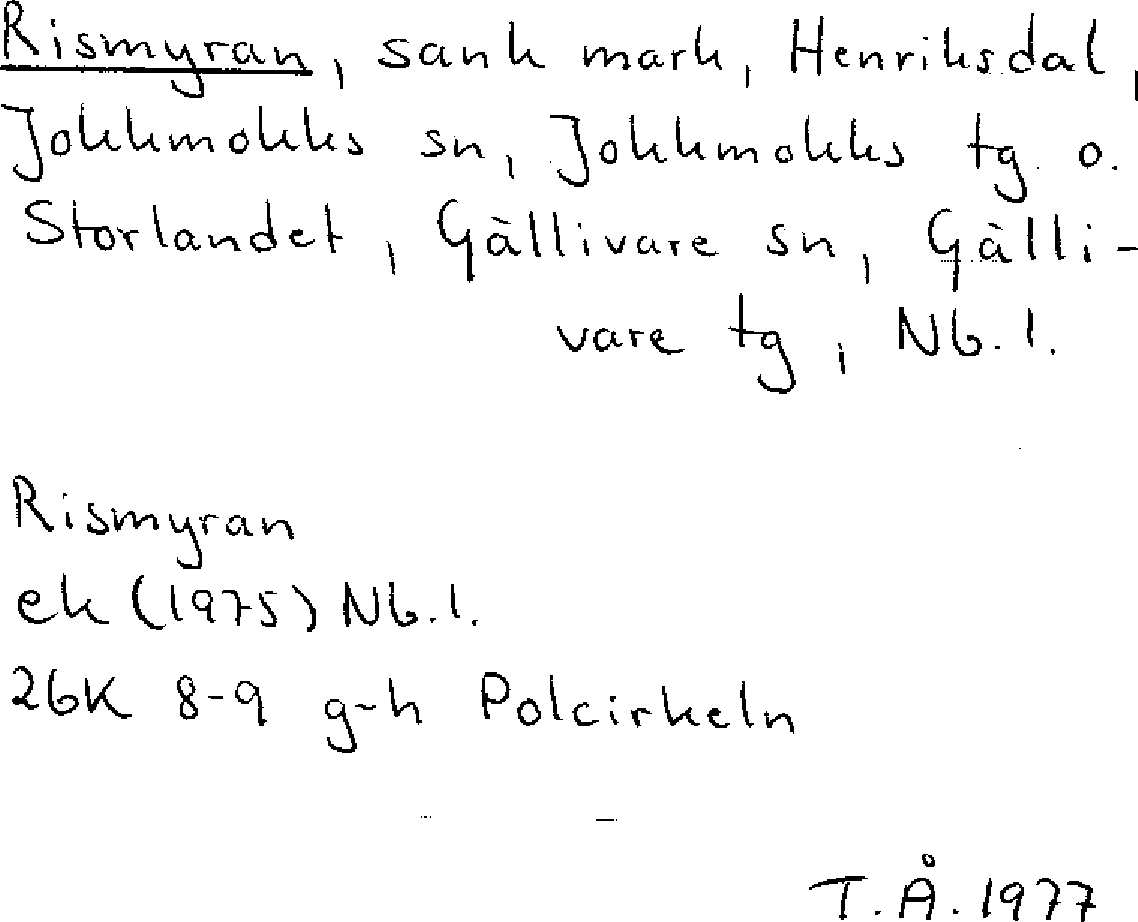 Rismyran, sank mark, Henriksdal,
Jokkmokks sn, Jokkmokks tg. o.
Storlandet, Gällivare sn, Gälli-
vare tg, Nb. l.
Rismyran
ek (1975) Nb. l.
26K 8-9 g-h Polcirkeln
T. Å. 1977